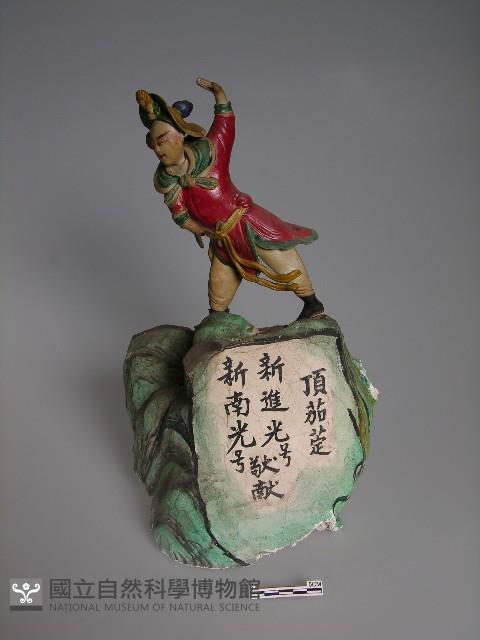 頂茄萣
新進光号敬献
新南光号
國立自然科學博物館
NATIONAL MUSEUM OF NATURAL SCIENCE
5CM